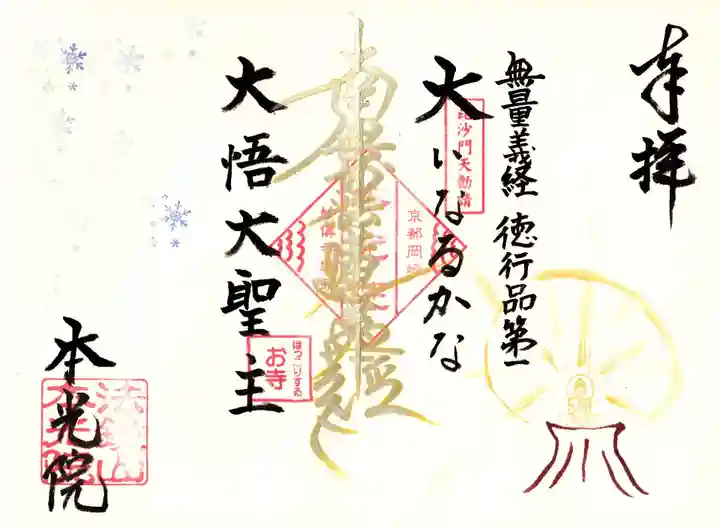 奉拝
無量義経 徳行品第一
大いなるかな
毘沙門天勧請
京都岡崎
南無妙法蓮華経
大悟大聖主
ほっこりする
お寺
本光院